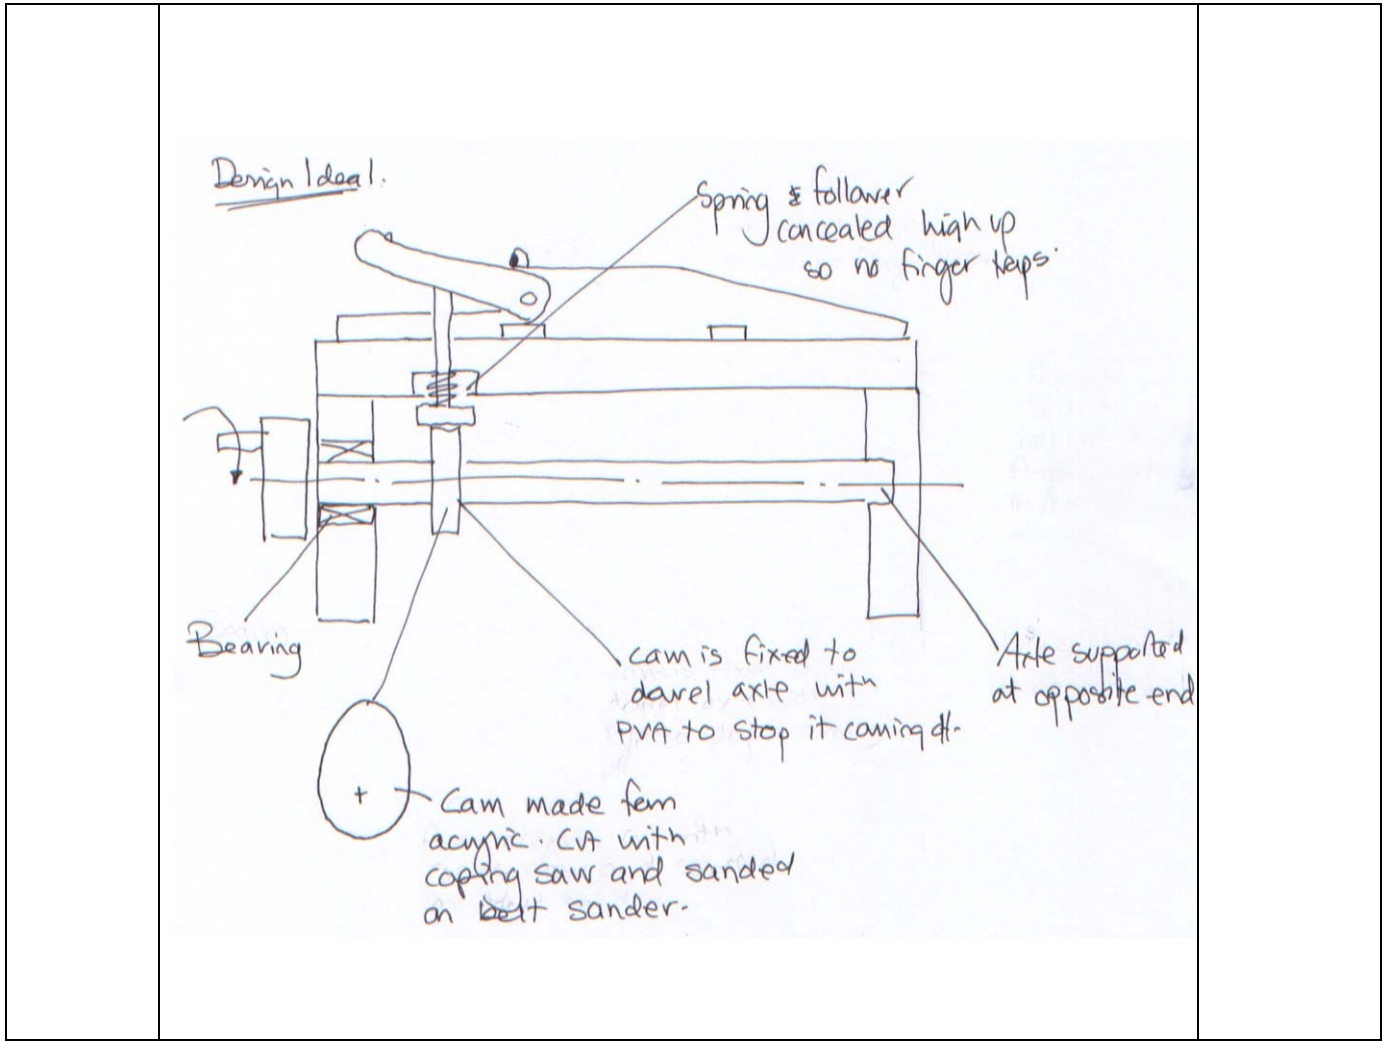 Design Idea 1.
Spring & follower
concealed high up
so no finger traps.
Bearing
cam is fixed to
dowel axle with
PVA to stop it coming off.
Axle supported
at opposite end
Cam made from
acrylic. Cut with
coping saw and sanded
on belt sander.